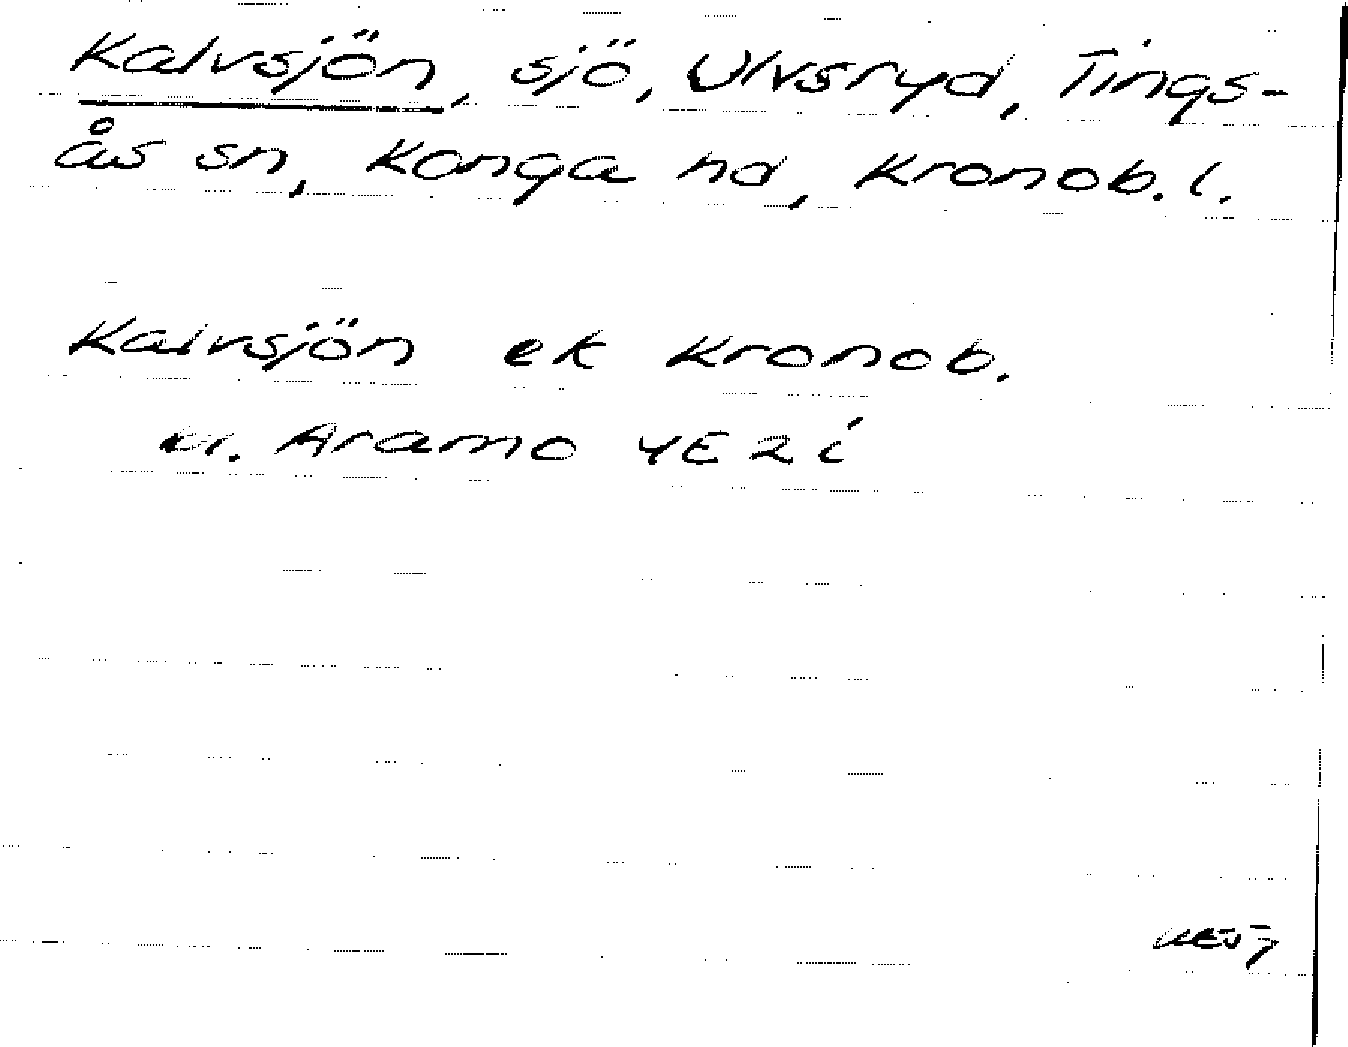 Kalvsjön, sjö, Ulvsryd, Tings-
ås sn, Konga hd, Kronob. l.
Kalvsjön ek Kronob.
Aramo 4E 2 i